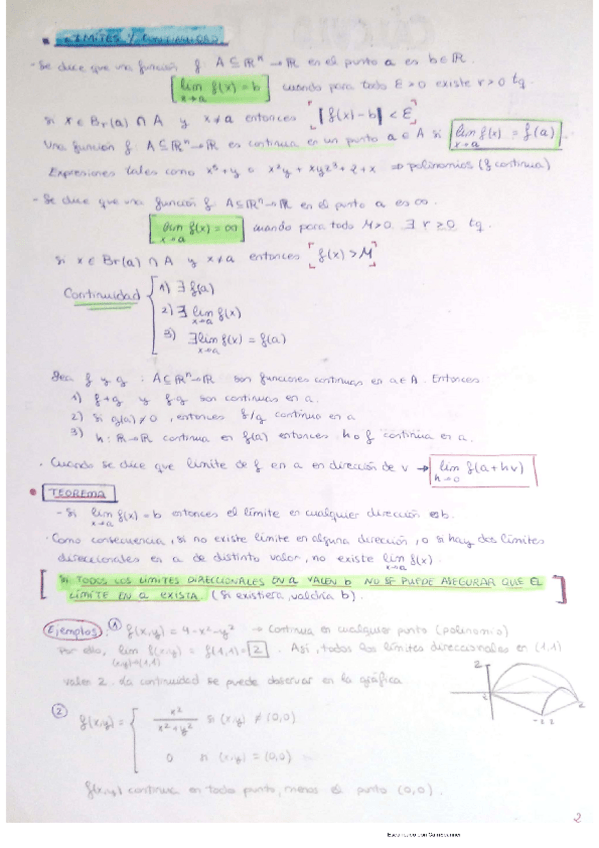 LIMITES Y CONTINUIDAD
- Se dice que una función f: A ⊆ ℝⁿ → ℝ en el punto a es b ∈ ℝ.
lim f(x) = b cuando para todo ε > 0 existe r > 0 tq.
x→a
si x ∈ Br(a) ∩ A y x ≠ a entonces |f(x) - b| < ε
Una función f: A ⊆ ℝⁿ → ℝ es continua en un punto a ∈ A si lim f(x) = f(a)
x→a
Expresiones tales como x⁵ + y o x²y + xyz³ + 2 + x ⇒ polinomios (f continua)
- Se dice que una función f: A ⊆ ℝⁿ → ℝ en el punto a es ∞.
lim f(x) = ∞ cuando para todo M > 0 ∃ r ≥ 0 tq.
x→a
si x ∈ Br(a) ∩ A y x ≠ a entonces f(x) > M
Continuidad
1) ∃ f(a)
2) ∃ lim f(x)
x→a
3) ∃ lim f(x) = f(a)
x→a
Sea f y g : A ⊆ ℝⁿ → ℝ son funciones continuas en a ∈ A. Entonces
1) f+g y f·g son continuas en a.
2) Si g(a) ≠ 0, entonces f/g continua en a
3) h: ℝ → ℝ continua en f(a) entonces h∘f continua en a.
· Cuando se dice que limite de f en a en dirección de v → lim f(a+hv)
h→0
• TEOREMA
- Si lim f(x) = b entonces el límite en cualquier dirección es b.
x→a
· Como consecuencia, si no existe límite en alguna dirección, o si hay dos límites
direccionales en a de distinto valor, no existe lim f(x).
x→a
SI TODOS LOS LIMITES DIRECCIONALES EN a VALEN b NO SE PUEDE ASEGURAR QUE EL
LÍMITE EN a EXISTA. (Si existiera, valdría b).
Ejemplos: ① f(x,y) = 4 - x² - y² → Continua en cualquier punto (polinomio)
Por ello, lim f(x,y) = f(1,1) = 2. Así, todos los límites direccionales en (1,1)
(x,y)→(1,1)
valen 2. La continuidad se puede observar en la gráfica
2
② f(x,y) =
x²
x² + y²
si (x,y) ≠ (0,0)
0 si (x,y) = (0,0)
f(x,y) continua en todo punto, menos el punto (0,0).
2
Escaneado con CamScanner